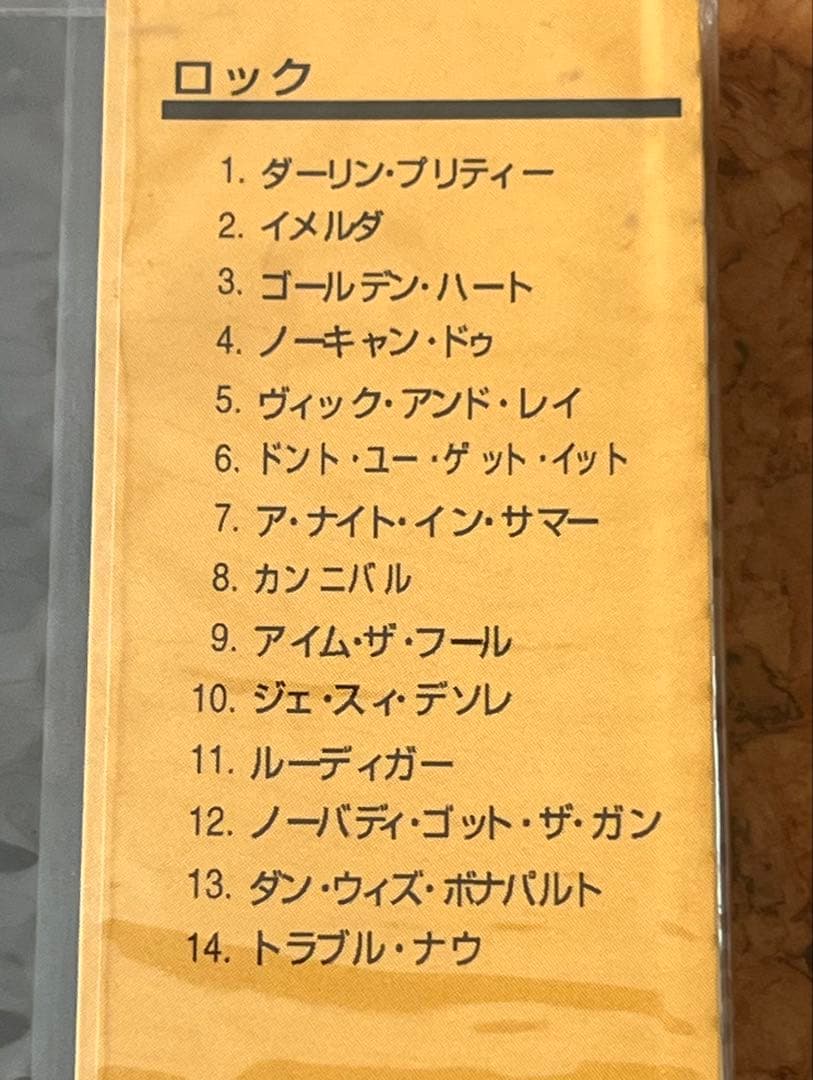 ロック
1. ダーリン・プリティー
2. イメルダ
3. ゴールデン・ハート
4. ノーキャン・ドゥ
5. ヴィック・アンド・レイ
6. ドント・ユー・ゲット・イット
7. ア・ナイト・イン・サマー
8. カンニバル
9. アイム・ザ・フール
10. ジェ・スィ・デソレ
11. ルーディガー
12. ノーバディ・ゴット・ザ・ガン
13. ダン・ウィズ・ボナパルト
14. トラブル・ナウ